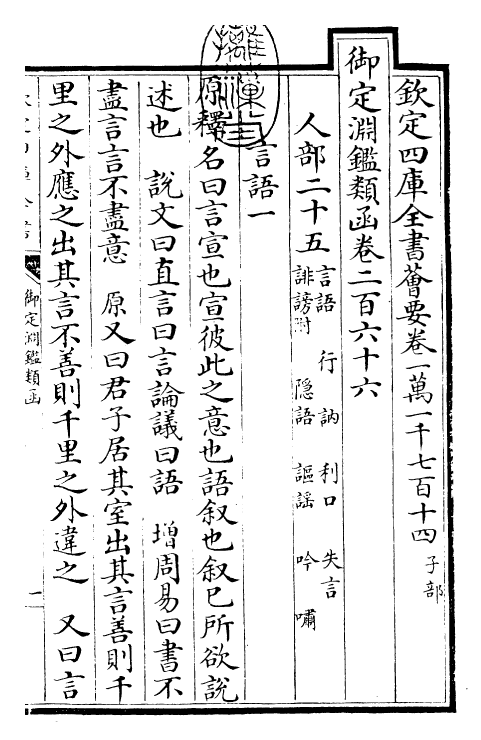 欽定四庫全書薈要卷一萬一千七百十四 子部
御定淵鑑類函卷二百六十六
人部二十五 言語 行 訥 利口 失言
誹謗附 隱語 謳謠 吟 嘯
言語一
原釋名曰言宣也宣彼此之意也語叙也叙已所欲說
述也 說文曰直言曰言論議曰語 增周易曰書不
盡言言不盡意 原又曰君子居其室出其言善則千
里之外應之出其言不善則千里之外違之 又曰言
御定淵鑑類函
一